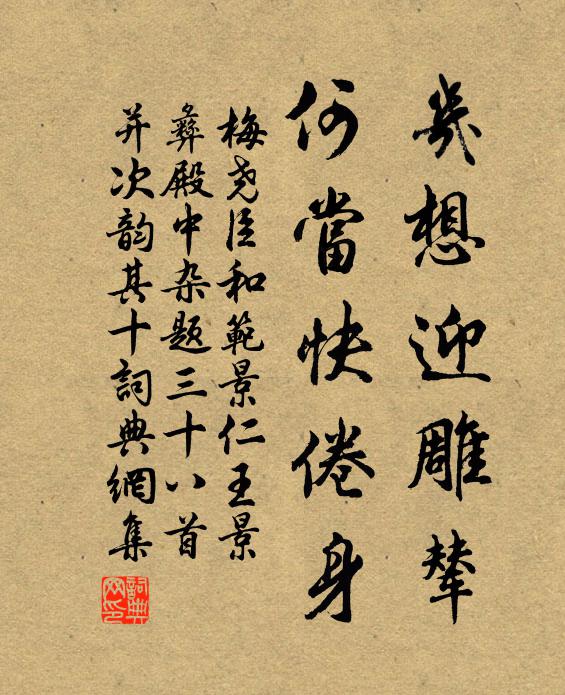 幾想迎雕輦
何當快倦身
梅尭臣和範景仁王景
彝殿中杂题三十八首
并次韵其十詞典網集
詞典网印